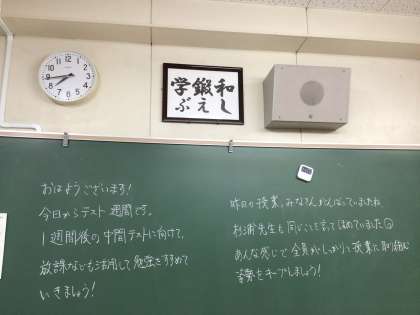 和 鍛 学
し え ぶ
おはようございます!
今日からテスト1週間です。
1週間後の中間テストに向けて、
放課なども活用して勉強をすすめて
いきましょう!
昨日の授業、みなさんがんばっていましたね
杉浦先生も同じことを言ってほめていました
あんな感じで全員がしっかりと授業に取り組む
姿勢をキープしましょう!